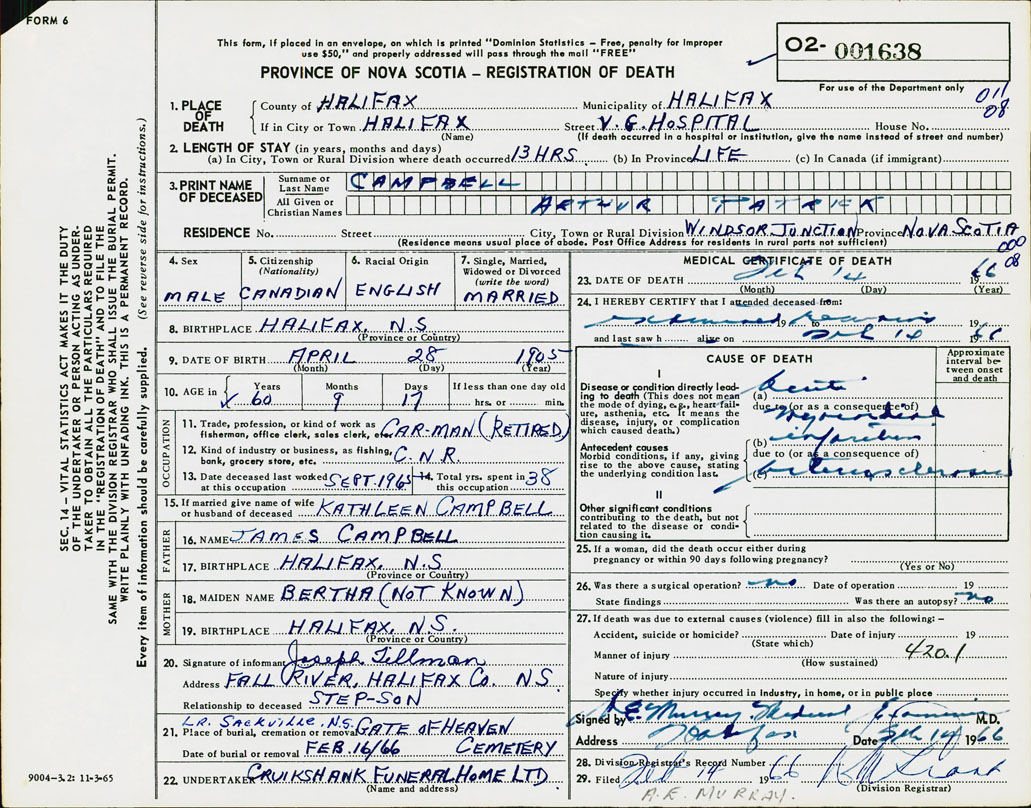 FORM 6
This form, if placed in an envelope, on which is printed "Dominion Statistics – Free, penalty for improper
use $50," and properly addressed will pass through the mail "FREE"
PROVINCE OF NOVA SCOTIA – REGISTRATION OF DEATH
02- 001638
For use of the Department only
011
08
SEC. 14 – VITAL STATISTICS ACT MAKES IT THE DUTY
OF THE UNDERTAKER OR PERSON ACTING AS UNDER-
TAKER TO OBTAIN ALL THE PARTICULARS REQUIRED
IN THE "REGISTRATION OF DEATH" AND TO FILE THE
SAME WITH THE DIVISION REGISTRAR WHO SHALL ISSUE THE BURIAL PERMIT.
WRITE PLAINLY WITH UNFADING INK. THIS IS A PERMANENT RECORD.
Every item of information should be carefully supplied. (See reverse side for instructions.)
1. PLACE OF DEATH
County of HALIFAX Municipality of HALIFAX
If in City or Town HALIFAX Street V.G. HOSPITAL House No.
(Name) (If death occurred in a hospital or institution, give the name instead of street and number)
2. LENGTH OF STAY (in years, months and days)
(a) In City, Town or Rural Division where death occurred 13 HRS. (b) In Province LIFE (c) In Canada (if immigrant)
3. PRINT NAME OF DECEASED
Surname or Last Name CAMPBELL
All Given or Christian Names ARTHUR PATRICK
RESIDENCE No. Street City, Town or Rural Division WINDSOR JUNCTION Province NOVA SCOTIA
(Residence means usual place of abode. Post Office Address for residents in rural parts not sufficient)
000
08
4. Sex MALE
5. Citizenship (Nationality) CANADIAN
6. Racial Origin ENGLISH
7. Single, Married, Widowed or Divorced (write the word) MARRIED
8. BIRTHPLACE HALIFAX, N.S
(Province or Country)
9. DATE OF BIRTH APRIL 28 1905
(Month) (Day) (Year)
10. AGE in Years Months Days If less than one day old
60 9 17 hrs. or min.
OCCUPATION
11. Trade, profession, or kind of work as
fisherman, office clerk, sales clerk, etc. CAR-MAN (RETIRED)
12. Kind of industry or business, as fishing,
bank, grocery store, etc. C.N.R.
13. Date deceased last worked at this occupation SEPT. 1965 14. Total yrs. spent in this occupation 38
15. If married give name of wife
or husband of deceased KATHLEEN CAMPBELL
FATHER
16. NAME JAMES CAMPBELL
17. BIRTHPLACE HALIFAX, N.S
(Province or Country)
MOTHER
18. MAIDEN NAME BERTHA (NOT KNOWN)
19. BIRTHPLACE HALIFAX, N.S.
(Province or Country)
20. Signature of informant Joseph Tillman
Address FALL RIVER, HALIFAX Co. N.S.
Relationship to deceased STEP-SON
LR. Sackville, N.S.
21. Place of burial, cremation or removal GATE OF HEAVEN
Date of burial or removal FEB. 16/66 CEMETERY
22. UNDERTAKER CRUIKSHANK FUNERAL HOME LTD
(Name and address)
9004-3.2: 11-3-65
MEDICAL CERTIFICATE OF DEATH
23. DATE OF DEATH Feb 14 1966
(Month) (Day) (Year)
24. I HEREBY CERTIFY that I attended deceased from:
examined remains 19 to
and last saw h alive on Feb 14 1966
CAUSE OF DEATH
Approximate interval between onset and death
I
Disease or condition directly lead-
ing to death (This does not mean
the mode of dying, e.g., heart fail-
ure, asthenia, etc. It means the
disease, injury, or complication
which caused death.)
(a) Acute
due to (or as a consequence of)
myocardial
Antecedent causes
Morbid conditions, if any, giving
rise to the above cause, stating
the underlying condition last.
(b) infarction
due to (or as a consequence of)
(c) arteriosclerosis
II
Other significant conditions
contributing to the death, but not
related to the disease or condi-
tion causing it.
25. If a woman, did the death occur either during
pregnancy or within 90 days following pregnancy?
(Yes or No)
26. Was there a surgical operation? no Date of operation 19
State findings Was there an autopsy? no
27. If death was due to external causes (violence) fill in also the following: –
Accident, suicide or homicide? Date of injury 19
(State which)
Manner of injury 420.1
(How sustained)
Nature of injury
Specify whether injury occurred in industry, in home, or in public place
Signed by A.E. Murray. Medical Examiner M.D.
Address Halifax Date Feb 14 1966
28. Division Registrar's Record Number
29. Filed Feb 14 1966
(Division Registrar)
A.E. MURRAY.